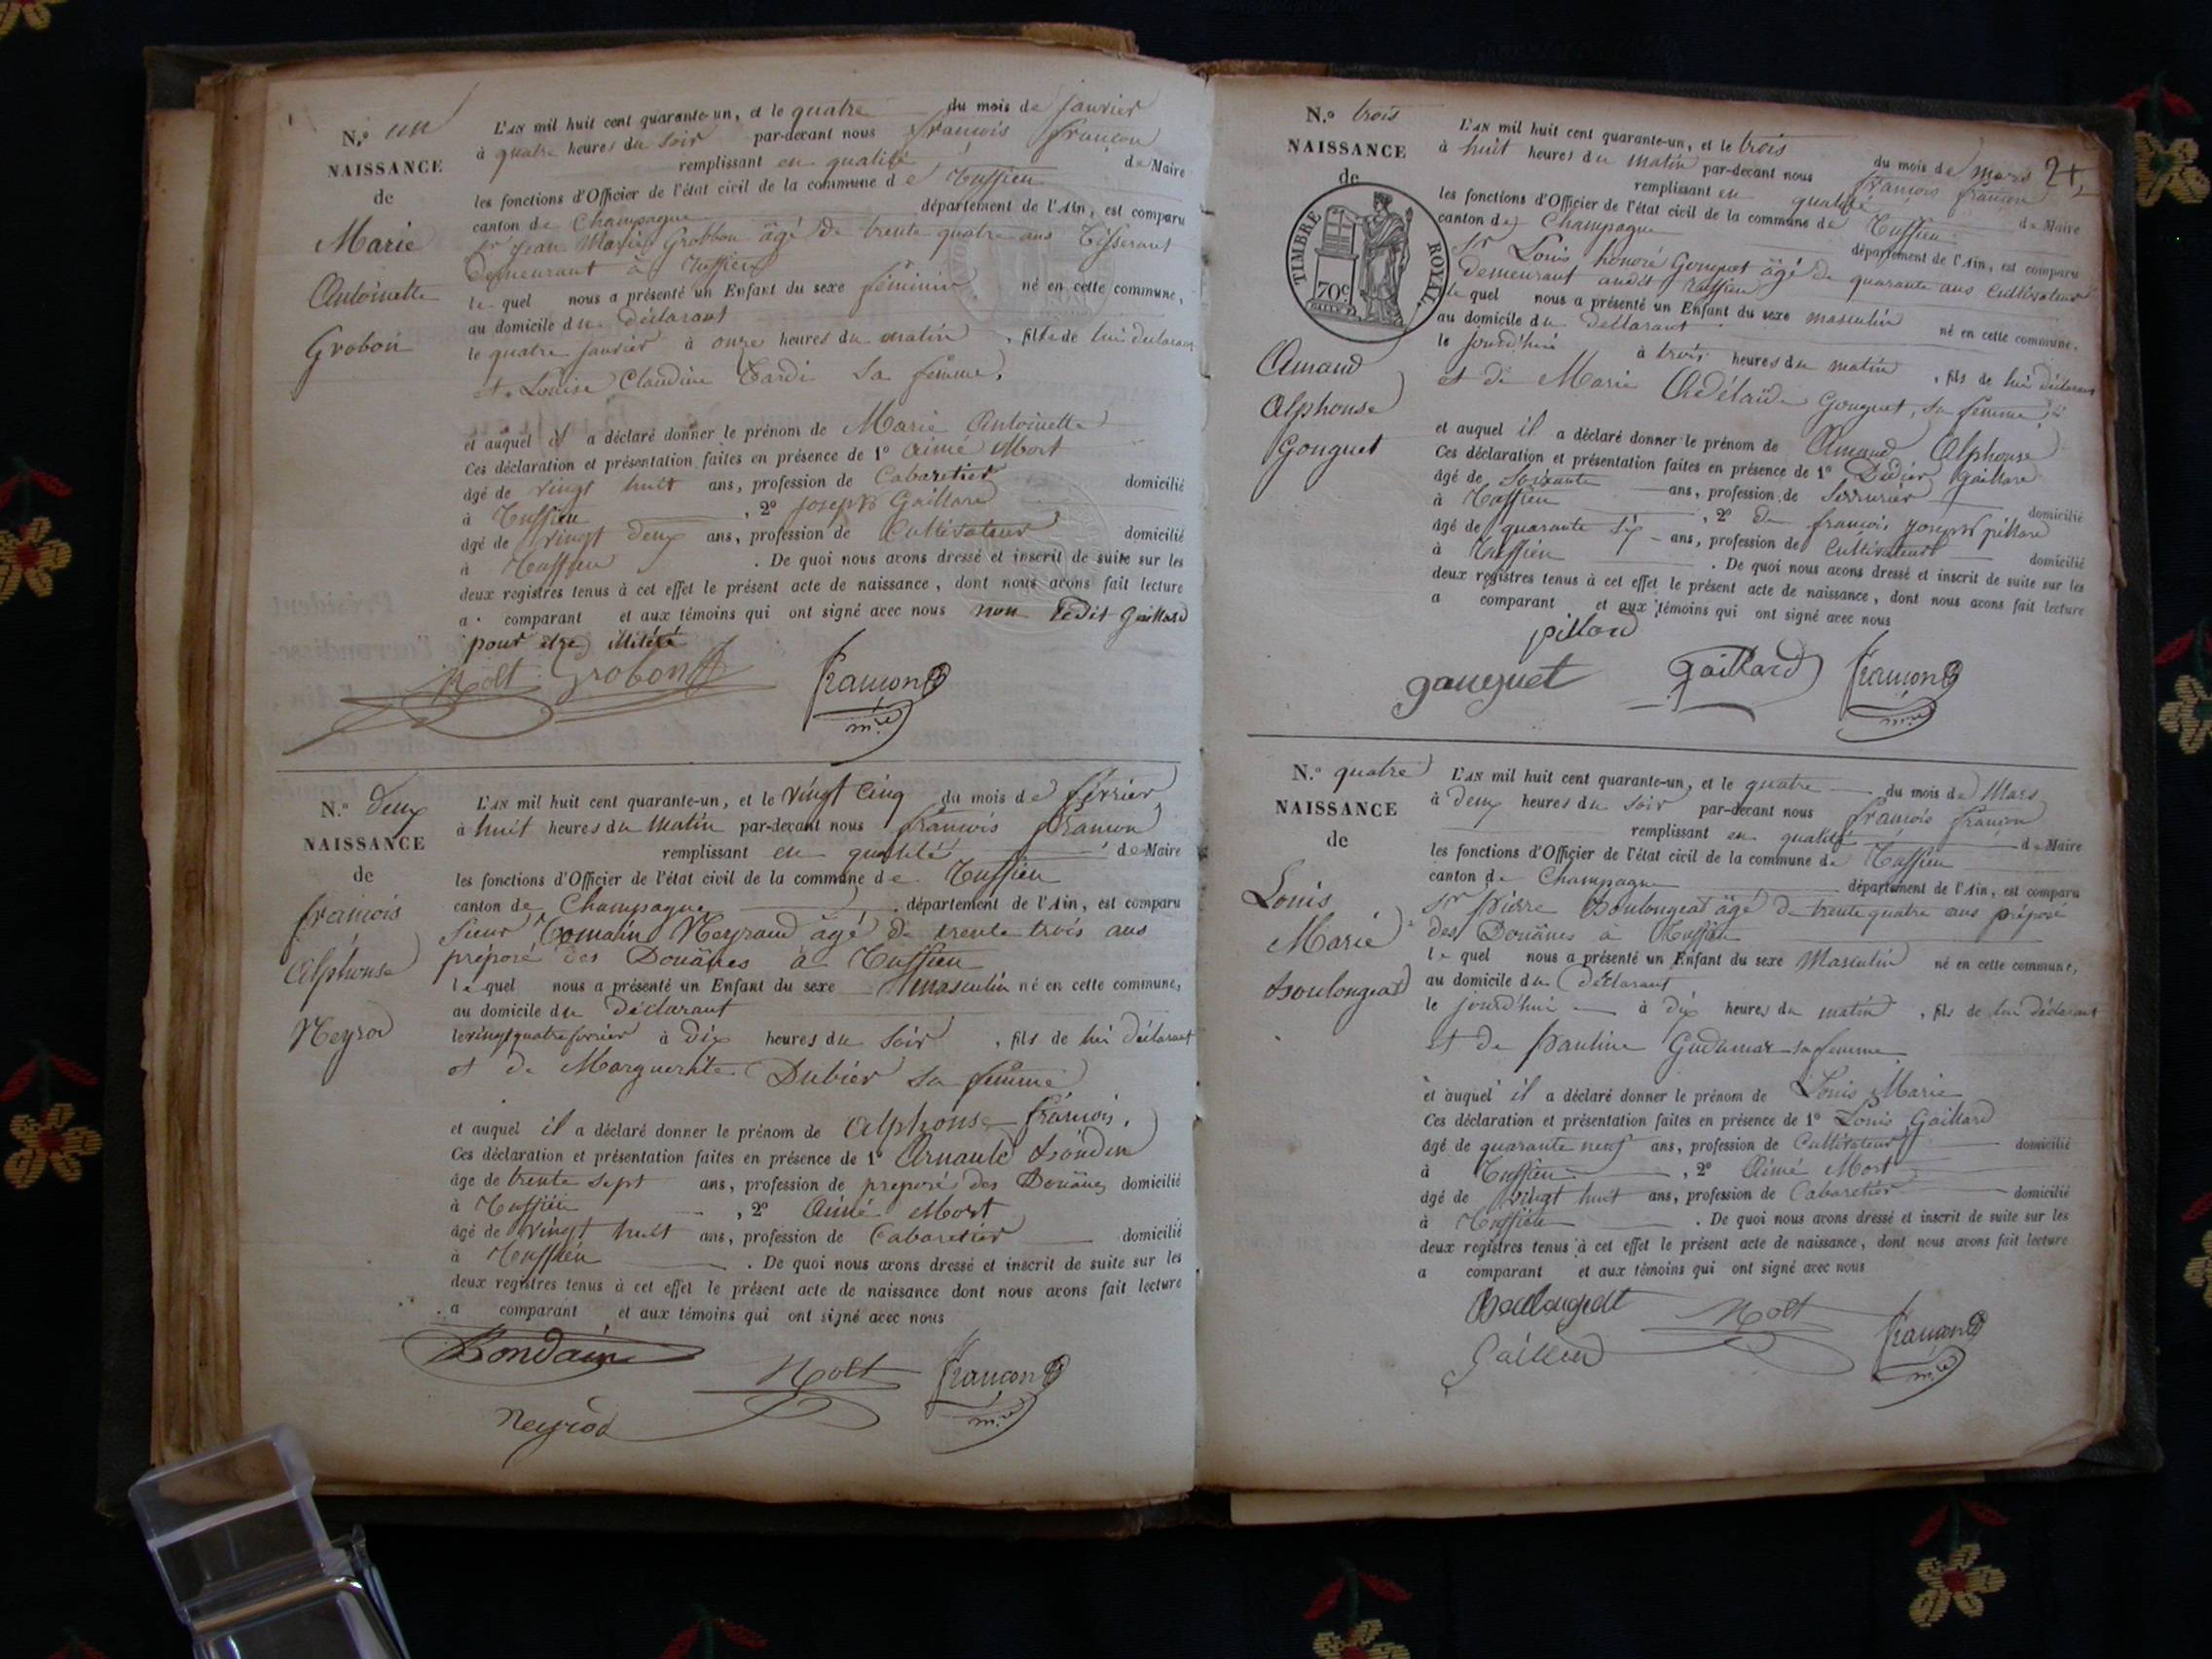 N.° un
NAISSANCE
de
Marie
Antoinette
Grobon
L'AN mil huit cent quarante-un, et le quatre du mois de janvier
à quatre heures du soir par-devant nous françois françon
remplissant en qualité de Maire
les fonctions d'Officier de l'état civil de la commune de Ruffieu
canton de Champagne département de l'Ain, est comparu
Sr Jean Marie Grobbon âgé de trente quatre ans Tisserant
demeurant à Ruffieu
le quel nous a présenté un Enfant du sexe féminin né en cette commune,
au domicile du déclarant
le quatre janvier à onze heures du matin, fille de lui déclarant
et Louise Claudine Tardi sa femme,
et auquel il a déclaré donner le prénom de Marie Antoinette
Ces déclaration et présentation faites en présence de 1° Aimé Mort
âgé de vingt huit ans, profession de Cabaretier domicilié
à Ruffieu, 2° joseph Gaillard
âgé de vingt deux ans, profession de Cultivateur domicilié
à Ruffieu. De quoi nous avons dressé et inscrit de suite sur les
deux registres tenus à cet effet le présent acte de naissance, dont nous avons fait lecture
a comparant et aux témoins qui ont signé avec nous non ledit Gaillard
pour etre illitéré
Molt Grobon françon
m.re
N.° deux
NAISSANCE
de
françois
Alphonse
Neyrod
L'AN mil huit cent quarante-un, et le vingt cinq du mois de février
à huit heures du matin par-devant nous francois francon
remplissant en qualité de Maire
les fonctions d'Officier de l'état civil de la commune de Ruffieu
canton de Champagne département de l'Ain, est comparu
Sieur Romain Neyraud âgé de trente trois ans
préposé des Douânes à Ruffieu
le quel nous a présenté un Enfant du sexe masculin né en cette commune,
au domicile du déclarant
le vingt quatre fevrier à dix heures du soir, fils de lui déclarant
et de Marguerite Dubier sa femme
et auquel il a déclaré donner le prénom de Alphonse françois,
Ces déclaration et présentation faites en présence de 1° Arnault Bondin
âgé de trente sept ans, profession de preposé des Douânes domicilié
à Ruffieu, 2° Aimé Mort
âgé de vingt huit ans, profession de Cabaretier domicilié
à Ruffieu. De quoi nous avons dressé et inscrit de suite sur les
deux registres tenus à cet effet le présent acte de naissance dont nous avons fait lecture
a comparant et aux témoins qui ont signé avec nous
Bondain Molt françon
m.re
Neyrod
N.° trois
NAISSANCE
de
TIMBRE ROYAL
70c
Amand
Alphonse
Gonguet
2
L'AN mil huit cent quarante-un, et le trois du mois de mars
à huit heures du matin par-devant nous françois françon
remplissant en qualité de Maire
les fonctions d'Officier de l'état civil de la commune de Ruffieu
canton de Champagne département de l'Ain, est comparu
Sr Louis honoré Gonguet âgé de quarante ans cultivateur
demeurant audit ruffieu
le quel nous a présenté un Enfant du sexe masculin né en cette commune,
au domicile du déclarant
le jourd'hui à trois heures du matin, fils de lui déclarant
et de Marie Adélaïde Gonguet, sa femme,
et auquel il a déclaré donner le prénom de Amand Alphonse
Ces déclaration et présentation faites en présence de 1° Didier Gaillard
âgé de soixante ans, profession de Serrurier domicilié
à Ruffieu, 2° francois joseph pillard
âgé de quarante six ans, profession de Cultivateur domicilié
à Ruffieu. De quoi nous avons dressé et inscrit de suite sur les
deux registres tenus à cet effet le présent acte de naissance, dont nous avons fait lecture
a comparant et aux témoins qui ont signé avec nous
pillard
gonguet Gaillard françon
m.re
N.° quatre
NAISSANCE
de
Louis
Marie
Boulongeat
L'AN mil huit cent quarante-un, et le quatre du mois de Mars
à deux heures du soir par-devant nous françois françon
remplissant en qualité de Maire
les fonctions d'Officier de l'état civil de la commune de Ruffieu
canton de Champagne département de l'Ain, est comparu
Sr Pierre Boulongeat âgé de trente quatre ans préposé
des Douânes à Ruffieu
le quel nous a présenté un Enfant du sexe Masculin né en cette commune,
au domicile du Déclarant
le jourd'hui à dix heures du matin, fils de lui déclarant
et de Pauline sa femme
et auquel il a déclaré donner le prénom de Louis Marie
Ces déclaration et présentation faites en présence de 1° Louis Gaillard
âgé de quarante neuf ans, profession de Cultivateur domicilié
à Ruffieu, 2° Aimé Mort
âgé de vingt huit ans, profession de Cabaretier domicilié
à Ruffieu. De quoi nous avons dressé et inscrit de suite sur les
deux registres tenus à cet effet le présent acte de naissance, dont nous avons fait lecture
a comparant et aux témoins qui ont signé avec nous
Boulongeat Molt françon
Gaillard m.re